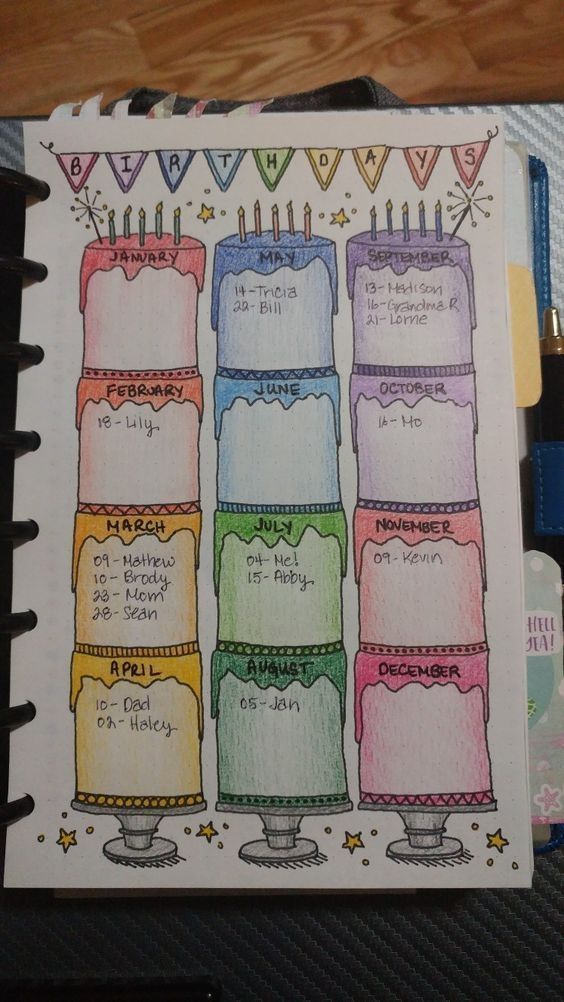 BIRTHDAYS
JANUARY
FEBRUARY
18 - Lily
MARCH
09 - Mathew
10 - Brody
23 - Mom
28 - Sean
APRIL
10 - Dad
02 - Haley
MAY
14 - Tricia
22 - Bill
JUNE
JULY
04 - Me!
15 - Abby
AUGUST
05 - Jan
SEPTEMBER
13 - Madison
16 - Grandma R
21 - Lorne
OCTOBER
16 - Mo
NOVEMBER
09 - Kevin
DECEMBER
HELL
YEA!